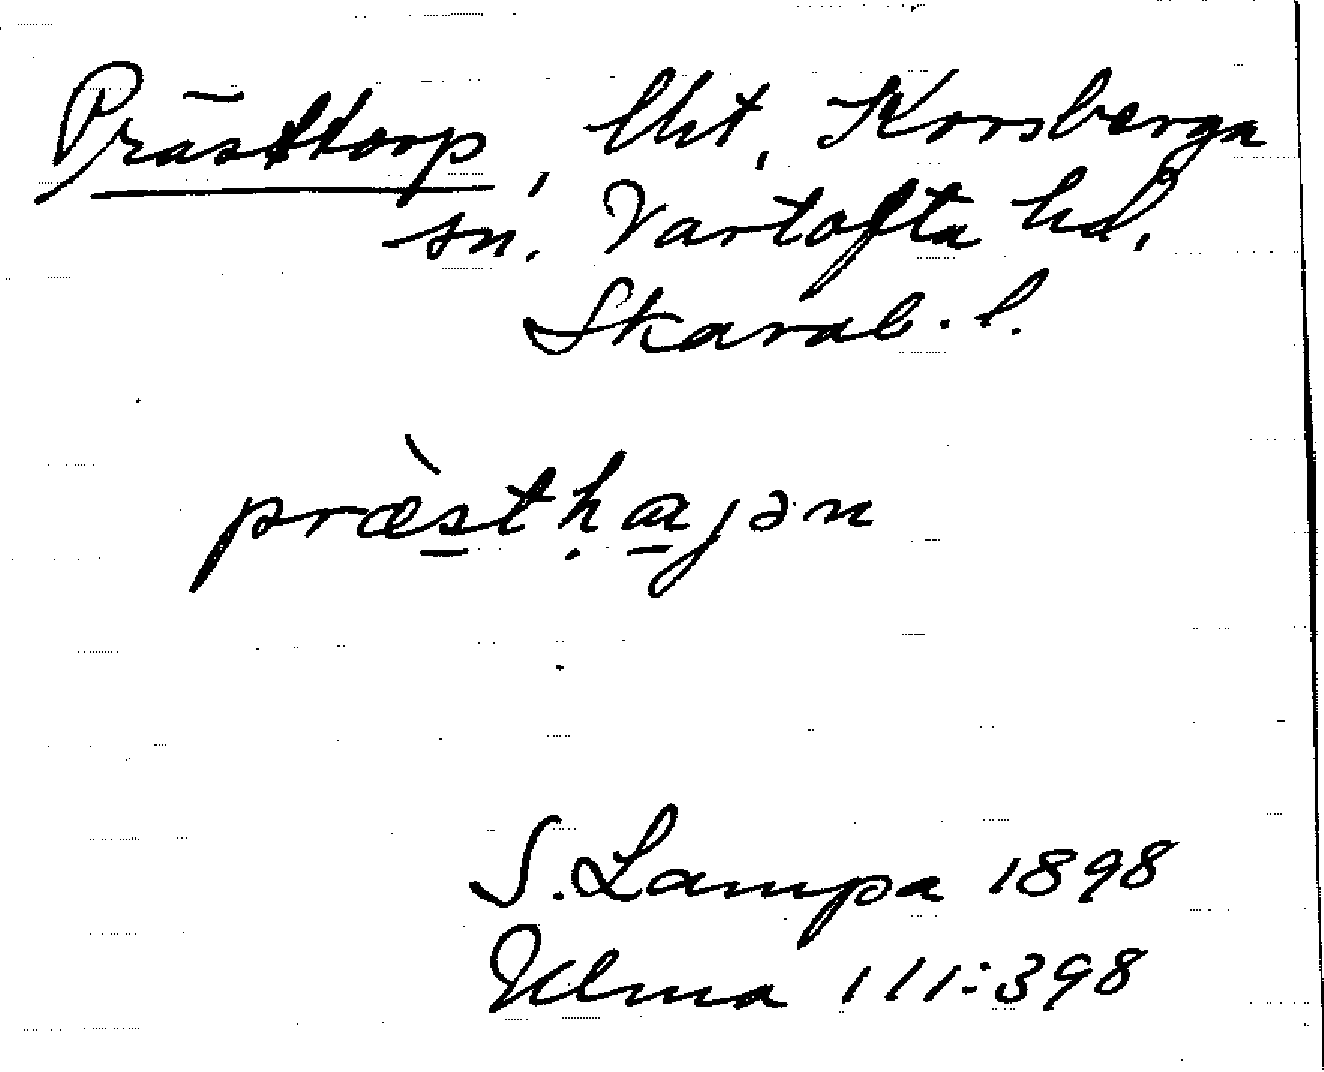 Prästtorp, tht, Korsberga
sn. Vartofta hd.
Skarab. l.
præ̀sthajən
S. Lampa 1898
Ulma 111:398